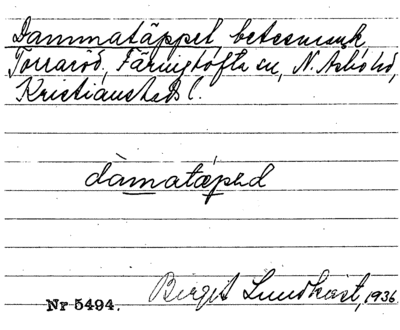 Dammatäppet betesmark
Torraröd, Färingtofta sn, N. Åsbo hd,
Kristianstads l.
dàmatæped
Birgit Lundkvist, 1936
Nr 5494.